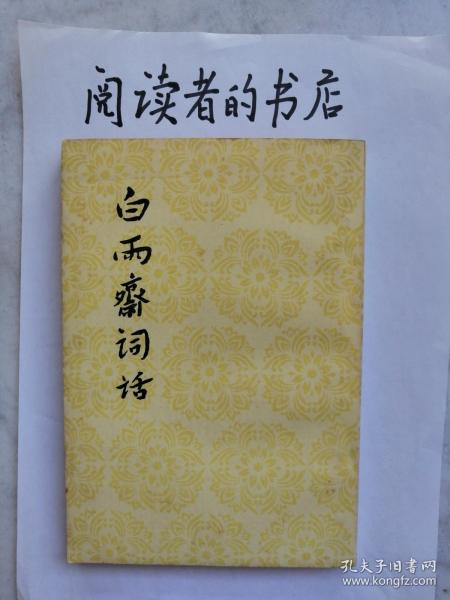 阅读者的书店
白雨齋词话
孔夫子旧书网
www.kongfz.com